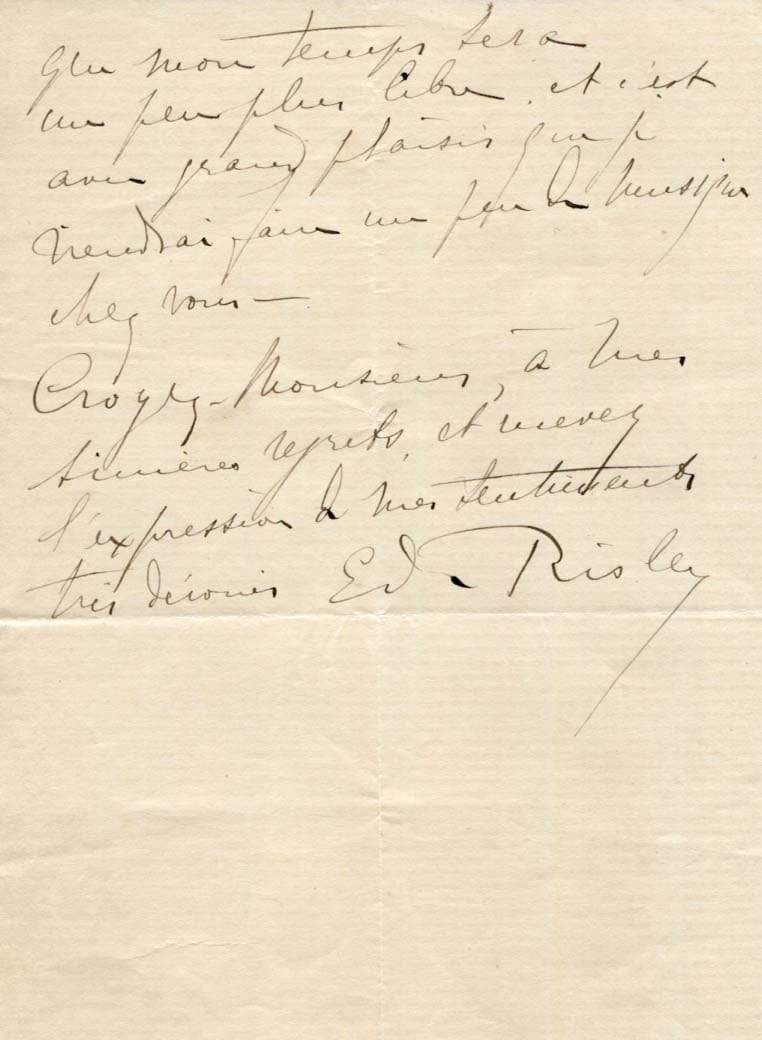 que mon temps sera
un peu plus libre. et c'est
avec grand plaisir que je
viendrai faire un peu de musique
chez vous —
Croyez-Monsieur, à mes
sincères regrets, et recevez
l'expression de mes sentiments
très dévoués Ed. Risley